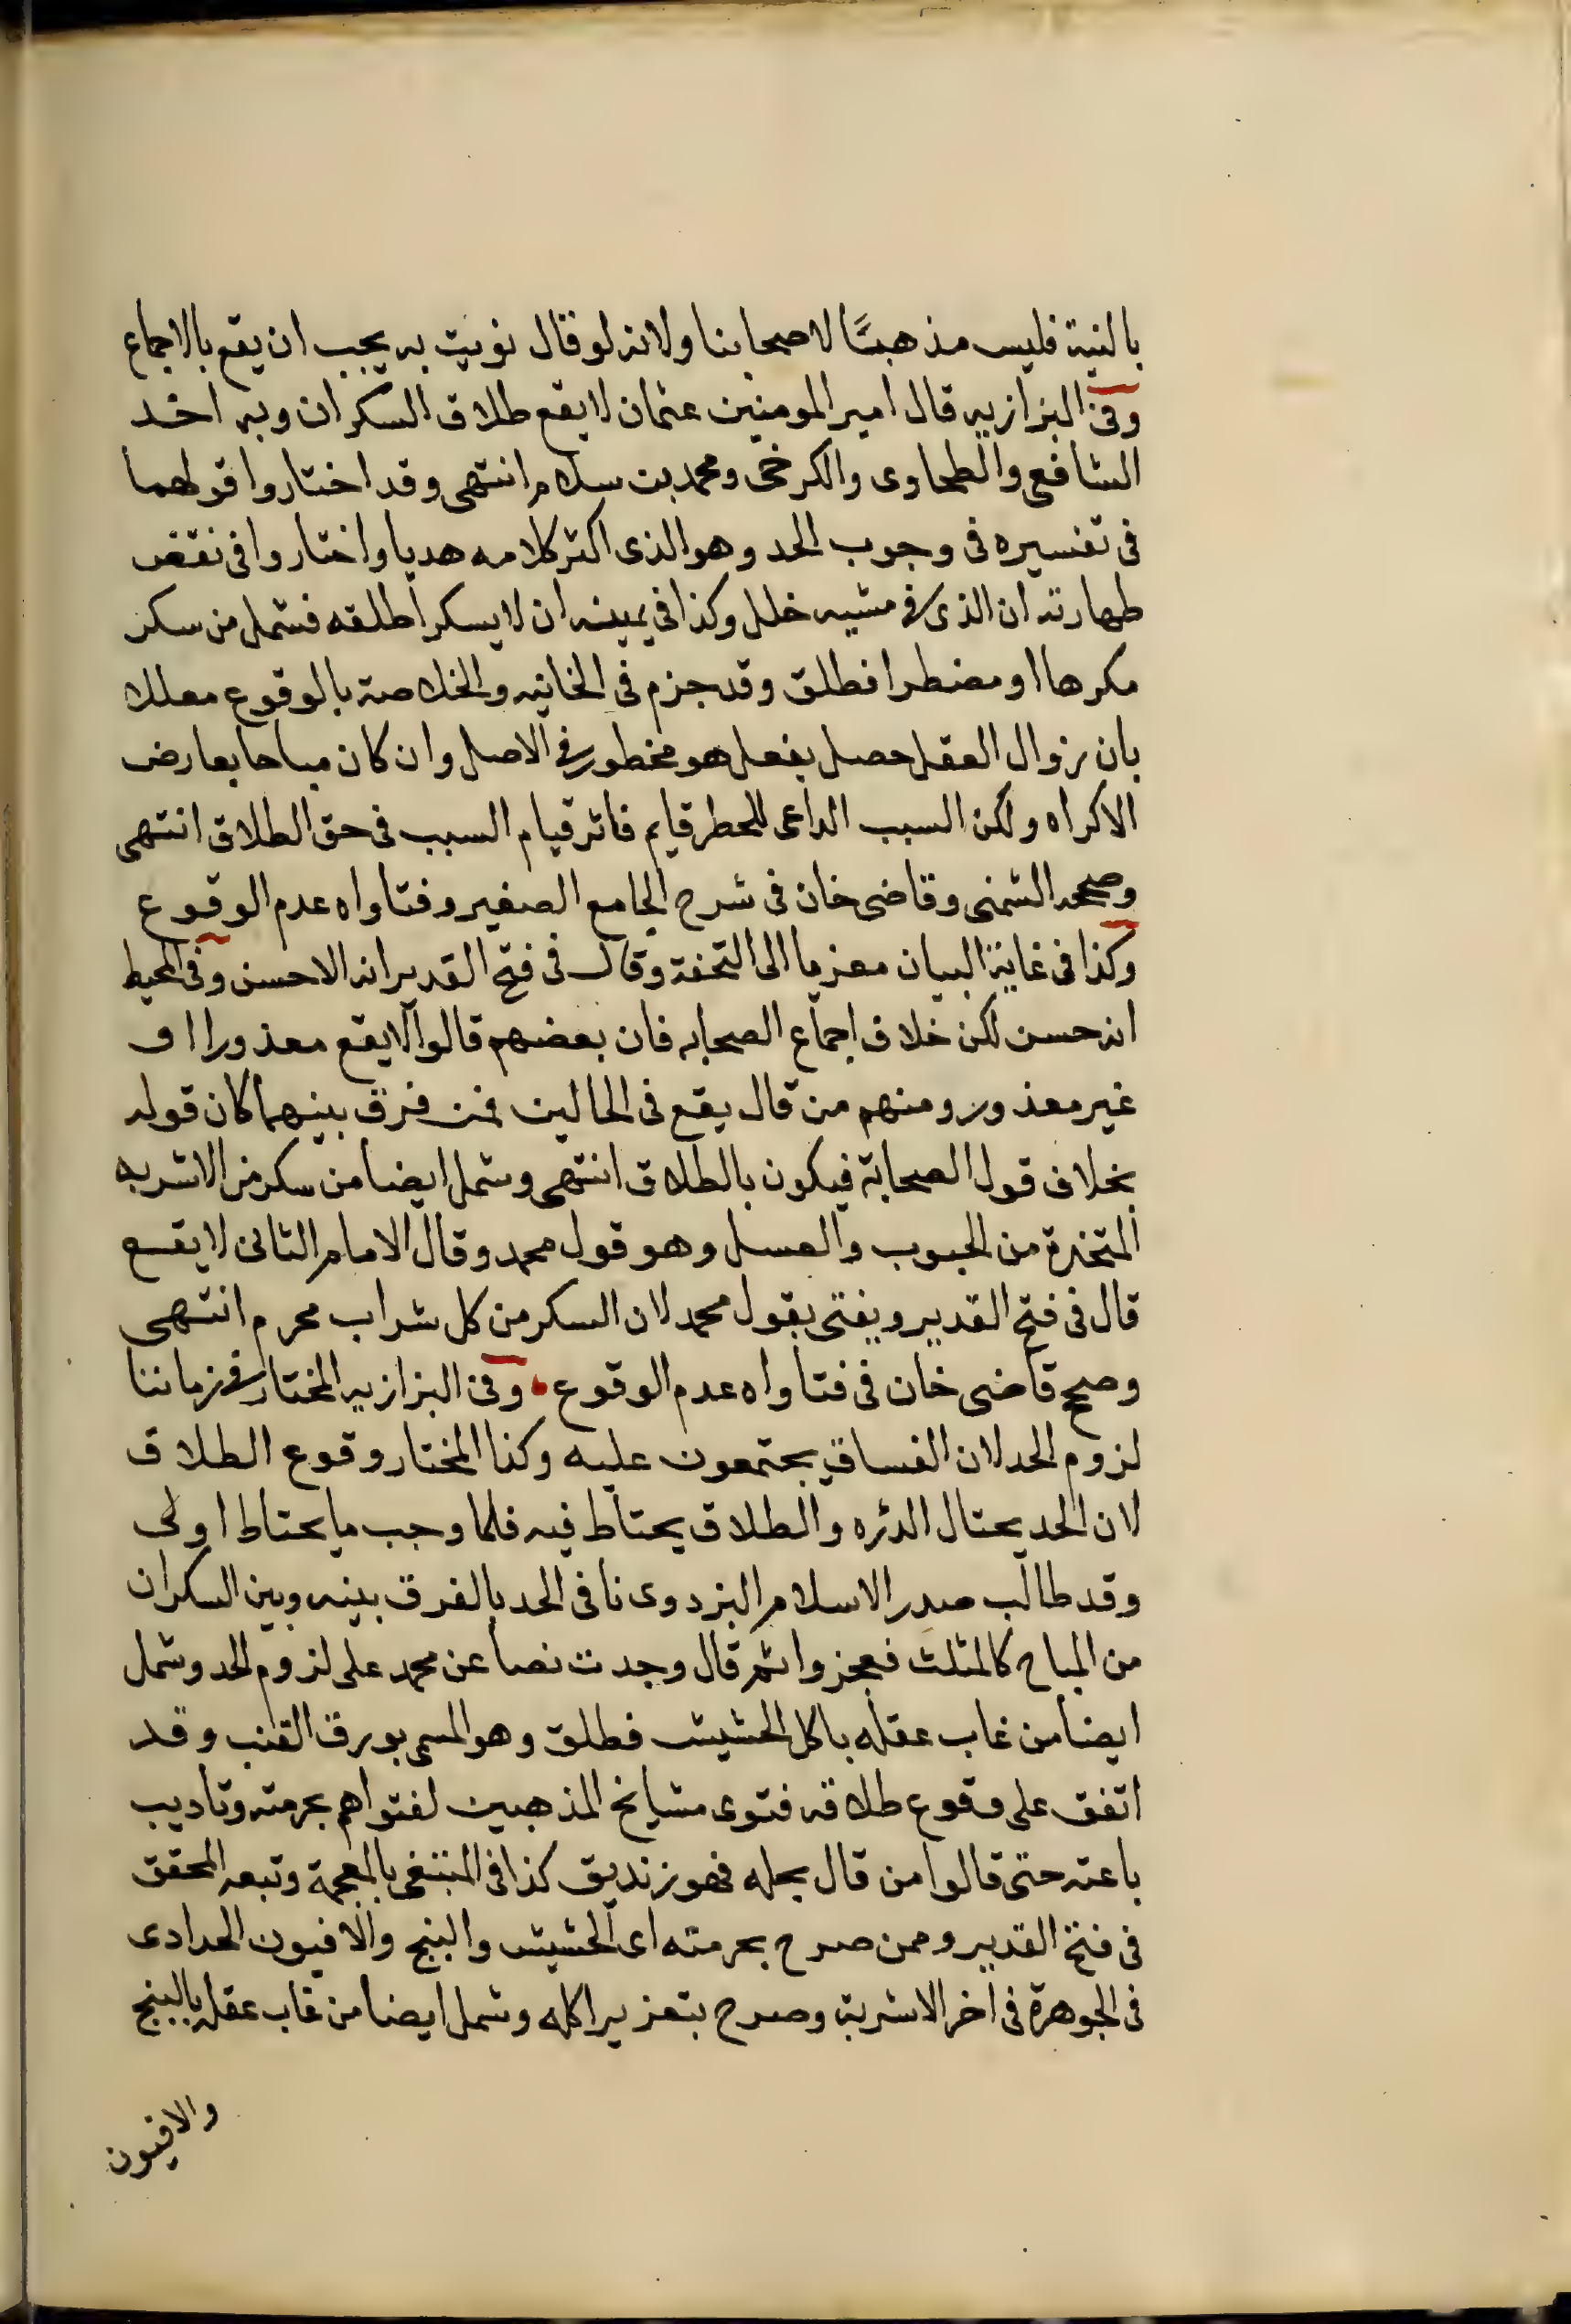 بالنية فليس مذهبًا لاصحابنا ولانه لو قال نويت به يجب ان يقع بالاجماع
وفى البزازيه قال امير المومنين عثمان لا يقع طلاق السكران وبه اخد
الشافعى والطحاوى والكرخى ومحمد بن سلام انتهى وقد اختاروا قولهما
فى تفسيره فى وجوب الحد وهو الذى اكثر كلامه هديا واختاروا فى نقض
طهارته ان الذى فى مشيه خلل وكذا فى يمينه ان لا يسكر اطلقه فشمل من سكر
مكرها او مضطرا فطلق وقد جزم فى الخانيه والخلاصة بالوقوع معللا
بان زوال العقل حصل بفعل هو محظور فى الاصل وان كان مباحا بعارض
الاكراه ولكن السبب الداعى للحظر قايم فاثر قيام السبب فى حق الطلاق انتهى
وصححه الشمنى وقاضى خان فى شرح الجامع الصغير وفتاواه عدم الوقوع
وكذا فى غاية البيان معزيا الى التحفة وقال فى فتح القدير انه الاحسن وفى المحيط
انه حسن لكن خلاف اجماع الصحابه فان بعضهم قالوا لا يقع معذورا او
غير معذور ومنهم من قال يقع فى الحالين فمن فرق بينهما كان قوله
بخلاف قول الصحابة فيكون بالطلاق انتهى وشمل ايضا من سكر من الاشربه
المتخذة من الحبوب والعسل وهو قول محمد وقال الامام الثانى لا يقع
قال فى فتح القدير ويفتى بقول محمد لان السكر من كل شراب محرم انتهى
وصحح قاضى خان فى فتاواه عدم الوقوع وفى البزازيه المختار فى زماننا
لزوم الحد لان الفساق يجتمعون عليه وكذا المختار وقوع الطلاق
لان الحد يحتال الدئره والطلاق يحتاط فيه فلما وجب ما يحتاط اولى
وقد طالب صدر الاسلام البزدوى نافى الحد بالفرق بينه وبين السكران
من المباح كالمثلث فعجزوا ثم قال وجدت نصا عن محمد على لزوم الحد وشمل
ايضا من غاب عقله باكل الحشيش فطلق وهو المسمى بورق القنب وقد
اتفق على وقوع طلاقه فتوى مشايخ المذهبين لفتواهم بحرمته وتاديب
باعته حتى قالوا من قال بحله فهو زنديق كذا فى المبتغى بالمعجمة وتبعه المحقق
فى فتح القدير وممن صرح بحرمته اى الحشيش والبنج والافيون الحدادى
فى الجوهرة فى اخر الاشربة وصرح بتعزير اكله وشمل ايضا من غاب عقله بالبنج
والافيون